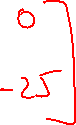 0
-25]